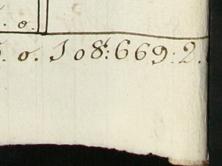 . o.
. o. 108:669:2.